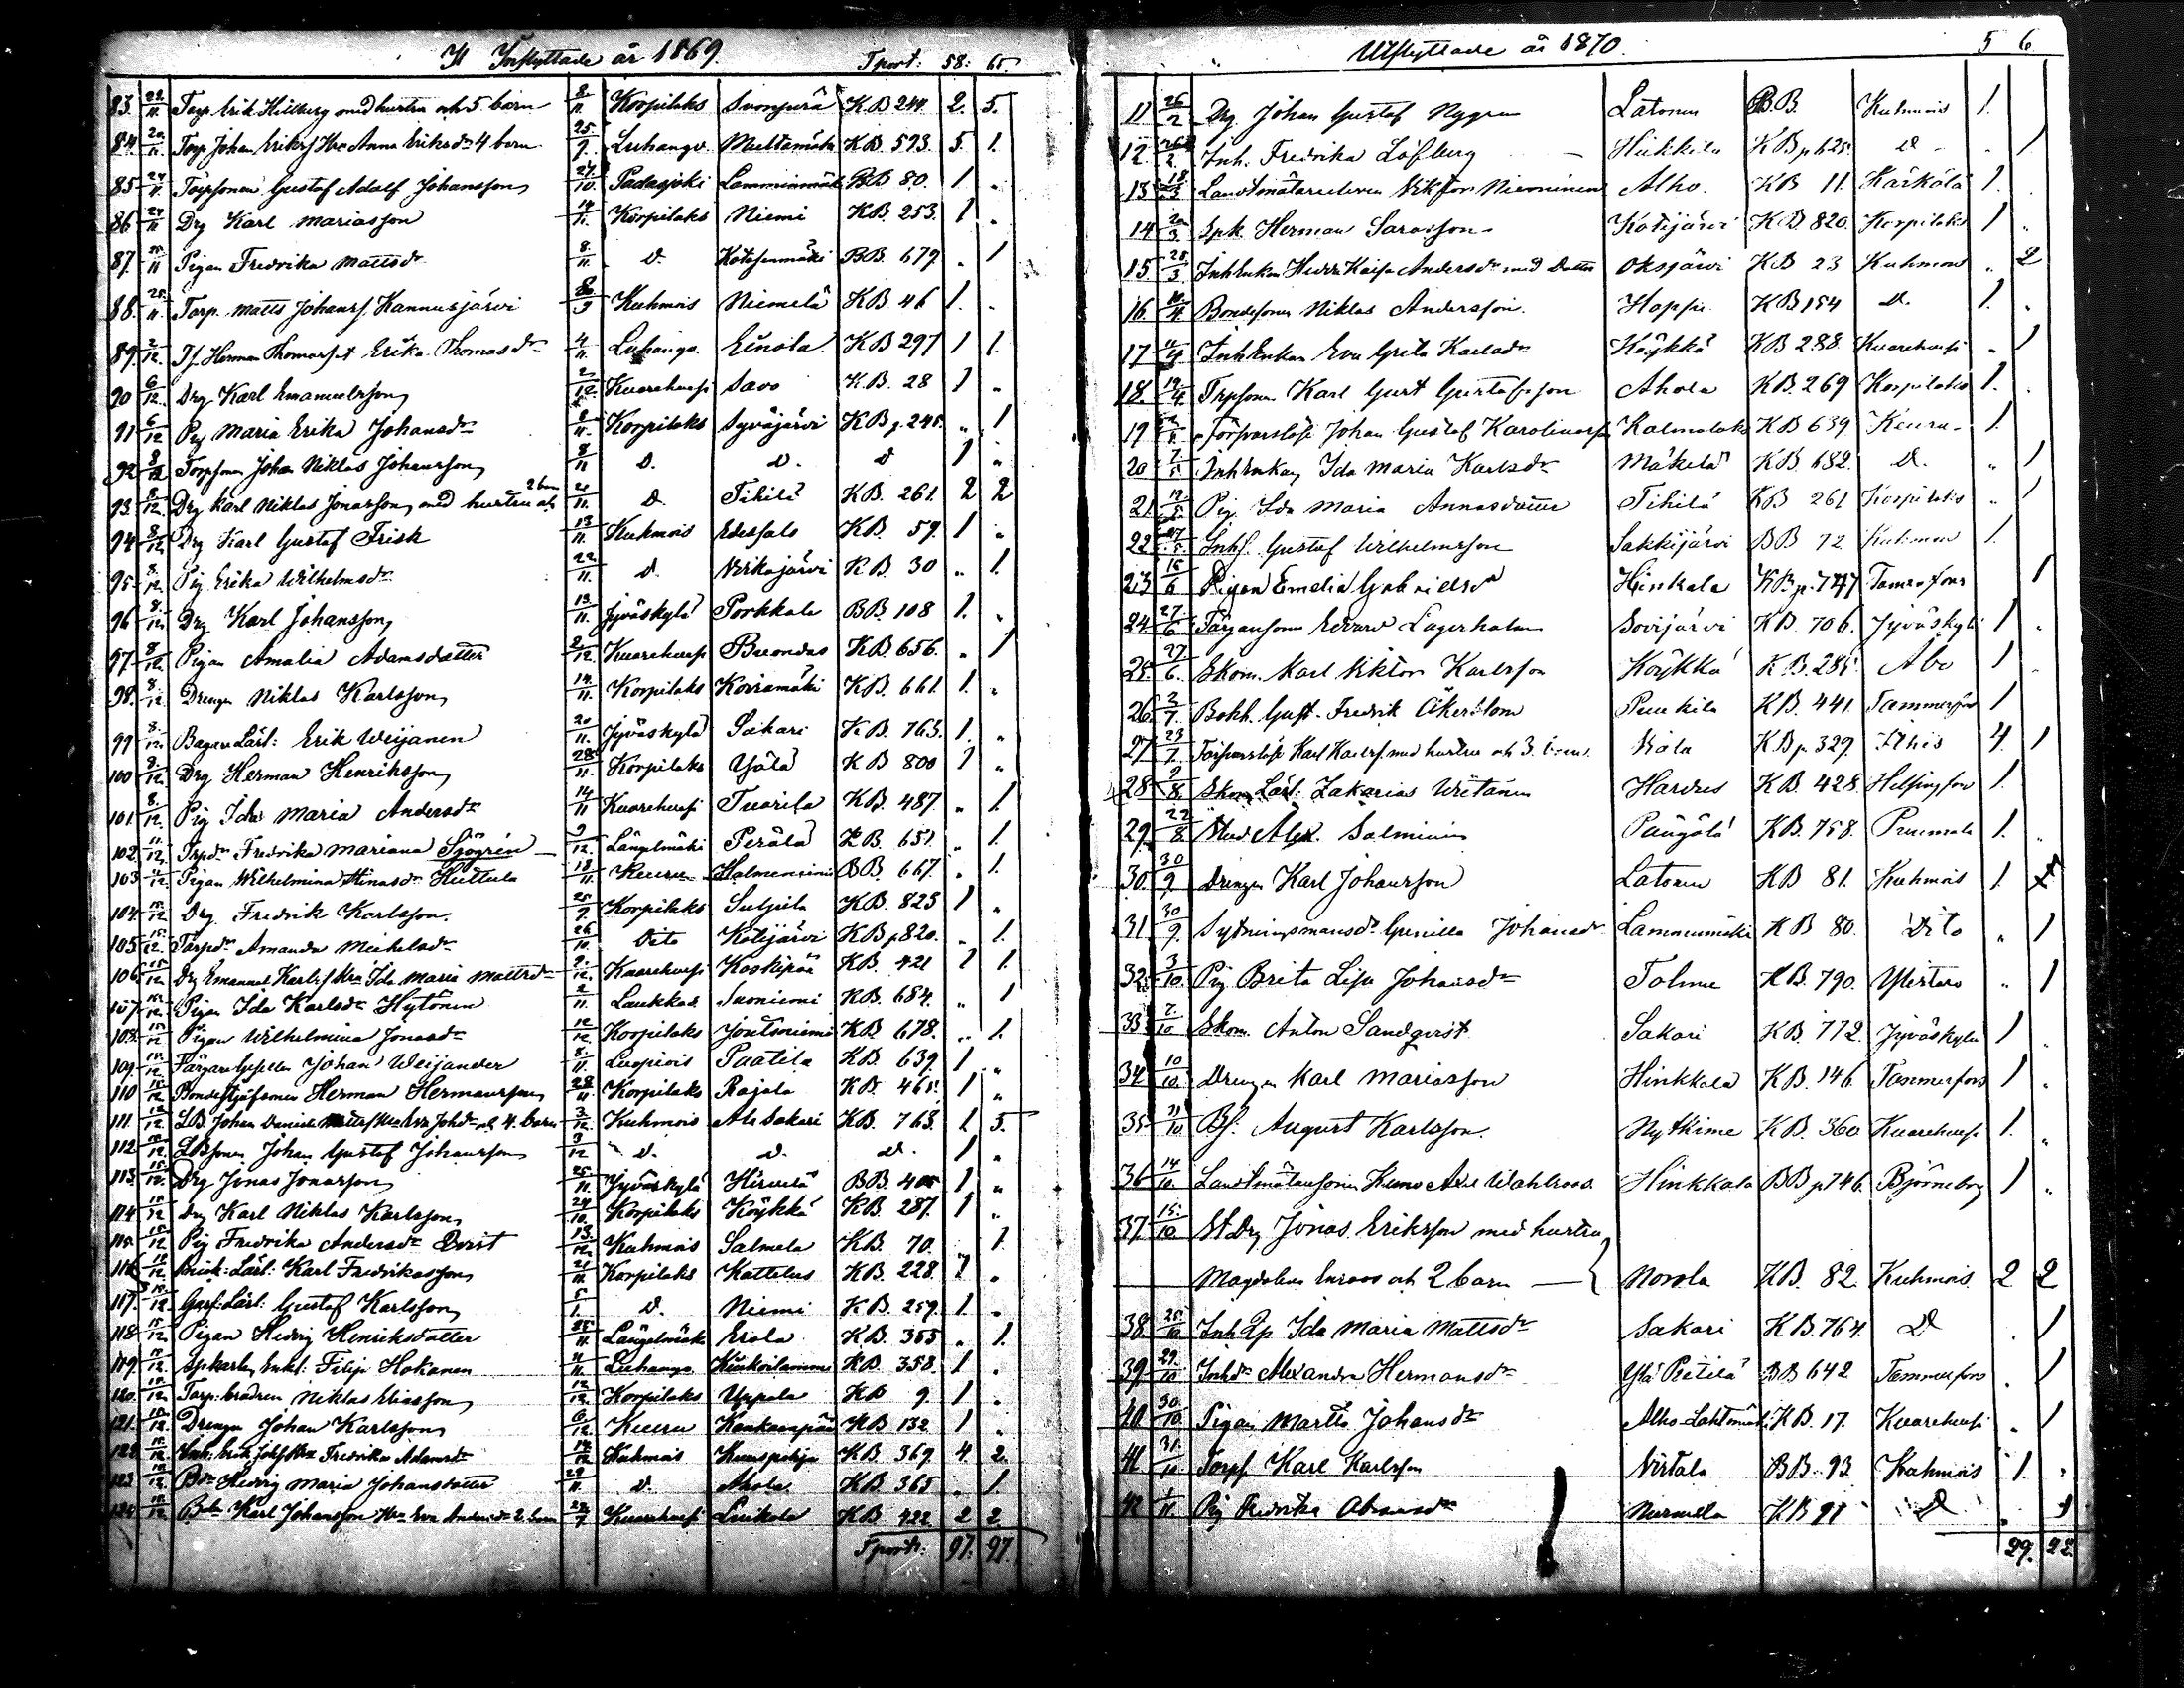 Inflyttade år 1869. Tport: 58: 65.
83. 22/11. Torp. Erik Hillberg med hustru och 5 barn 8/11. Korpilaks K.B. 244. 2. 5.
84. 20/11. Torp Johan Eriks Anna Eriksdr 4 barn 25/9. Luhango Multamäki KB. 593. 5. 1.
85 24/11. Torpsonen Gustaf Adolf Johansson 27/10. Padasjoki KB 80. 1 „
86 24/11 Drg Karl Mariasson 14/11. Korpilaks Niemi KB. 253. 1 „
87. 25/11 Pigan Fredrika Mattsdr 8/11. D. BB. 679. „ 1
88. 25/11. Torp. Matts Johanss. Kannusjärvi Kuhmois Niemelä KB 46 1. „
89. 2/12. Herman Erika Thomasdr 4/11. Luhango. Einola KB 297 1 1.
90 6/12. Drg Karl Emanuelsson 2/12. Kuorehvesi Savo K.B. 28 1 „
91 6/12 Pig Maria Erika Johansdr 8/11. Korpilaks Syväjärvi KB p. 245. „ 1
92 8/12 Torpsonen Johan Niklas Johansson 8/11 D. D. D 1 „
93. 8/12. Drg Karl Niklas Jonasson med hustru och 2 barn 21/11. D. Tihilä KB. 261. 2 2
94 8/12 Drg Karl Gustaf Frisk 13/11. Kuhmois Edessalo KB. 59. 1 „
95. 8/12. Pig Erika Wilhelmsdr 22/11. D. Virkajärvi KB. 30 „ 1.
96 8/12. Drg Karl Johansson 13/11. Jyväskylä Porkkala BB. 108 1. „
97 8/12. Pigan Amalia Adamsdotter 2/12. Kuorehvesi KB. 656. „ 1
98. 8/12 Drengen Niklas Karlsson 14/11. Korpilaks Koiramäki KB. 661. 1. „
99 8/12. Bagare Lärl: Erik Weijanen 20/11. Jyväskylä Sakari KB. 763. 1. „
100 8/12. Drg Herman Henriksson 28/11. Korpilaks KB 800 1 „
101 8/12. Pig Ida Maria Andersdr 14/11 Kuorehvesi Tuorila KB. 487. „ 1.
102 11/12. Trpdr Fredrika Mariana Sjögren 9/12. Längelmäki Perälä KB. 651. „ 1.
103 Pigan Wilhelmina Huttula 18/11. Keuru BB. 667. „ 1.
104. 15/12 Drg Fredrik Karlsson. 25/9. Korpilaks KB. 823 1 „
105 15/12. Torpdr Amanda Mickelsdr 26/10. Dito Kotijärvi KB p 820. „ 1.
106 15/12 Drg Emanuel Karls. Hu Ida Maria Mattsdr 9/12. Kuorehvesi Koskipää KB. 421 1 1.
107 15/12. Pigan Ida Karlsdr Hytönen 2/11. Laukkas Suoniemi KB. 684. „ 1
108. 15/12 Pigan Wilhelmina Jonasdr 12/12. Korpilaks Joutsniemi KB. 678. „ 1.
109. 15/12. Färgare Gesellen Johan Weijander 8/11. Luopiois Paatila KB. 639. 1 „
110 15/12 Herman Hermansson 28/11. Korpilaks Rajala KB. 465. 1 „
111. 15/12. LB. Johan Daniel 4 barn 3/12. Kuhmois Ala Sakari KB. 763. 1 5.
112 15/12. LBsonen Johan Gustaf Johansson 3/12 D. D. D. 1 „
113. 15/12. Drg Jonas Jonasson 25/11. Jyväskylä Hirvelä BB. 405 1 „
114 15/12 Drg Karl Niklas Karlsson 24/10. Korpilaks Köykkä KB. 287. 1 „
115. 15/12 Pig Fredrika Andersdr Qvist 13/12. Kuhmois Salmela KB. 70. „ 1.
116 15/12. Lärl: Karl Fredriksson 21/11. Korpilaks Kattelus KB. 228. 1 „
117. 15/12 Garf. Lärl: Gustaf Karlsson 5/1. D. Niemi KB. 259. 1. „
118 15/12. Pigan Hedvig Henriksdotter 25/11. Längelmäki Erola KB. 355 „ 1.
119. 15/12. Filip Hokanen Luhango KB. 358. 1 „
120. 15/12. Niklas Eliasson 12/12 Korpilaks Uppala KB 9. 1 „
121. 15/12. Drengen Johan Karlsson 6/12. Keuru Kankaanpää KB 132 1 „
122 15/12. Erik Fredrika Adamsdr 14/12 Kuhmois KB. 369 4 2.
123 15/12 Hedvig Maria Johansdotter 29/11. D. Ahola KB 365 „ 1.
124 15/12 Karl Johansson Hu Eva 2 barn Kuorehvesi Luikala KB 422. 2 2
Tport: 97. 97.
Utflyttade år 1870. 5 6
11 26/2 Drg Johan Gustaf Nygren Latonen B.B. Kuhmois 1.
12. Inh. Fredrika Löfberg Hukkila KB p 625. D „ 1
13 18/3 Viktor Nieminen Alho. KB 11. Kärkölä 1.
14 20/3. Spk. Herman Sarasson Kotijärvi KB. 820. Korpilaks 1 „
15 28/3 Inhenkan Hedda Kaisa Andersdr med Dotter Oksjärvi KB 23 Kuhmois „ 2
16. Bondesonen Niklas Andersson. Hoppu KB 154 D. 1. „
17 Inhenkan Eva Greta Karlsdr Köykkä KB 288. Kuorehvesi „ 1
18. 19/4. Trpsonen Karl Gust Gustafsson Ahola KB. 269 Korpilaks 1.
19 Johan Gustaf Karolinasson Kalmalaks KB 639 Keuru 1.
20 7/5 Inhenkan Ida Maria Karlsdr Mäkelä KB. 682. D. „ 1
21 12/5. Pig. Ida Maria Annasdotter Tihilä KB 261 Korpilaks „ 1
22 Inhs. Gustaf Wilhelmsson Sakkijärvi BB 72 Kuhmois 1.
23 15/6 Pigan Emelia Gabrielsdr Hinkala KB. p. 747 Tamrafors 1
24 27/6 Färgaresonen Edvard Lagerholm Sovijärvi KB. 706. Jyväskylä 1 „
25. 27/6. Skom. Karl Viktor Karlsson Köykkä KB. 285. Åbo 1
26 2/7. Bokh. Gust. Fredrik Åkerblom Puukila KB. 441. Tammerfors 1
27 23/7. Karl Karlss. med hustru och 3 barn KB p. 329. Ithis 4. 1
28 9/8 Skom Lärl: Zakarias Wirtanen Hardus KB. 428. Helsingfors 1.
29. 22/8. Stud Alex. Salminen KB. 758. Pruumala 1. „
30. 30/9 Drengen Karl Johansson Latonen KB 81. Kuhmois 1.
31 30/9. Sytningsmansdr Gunilla Johansdr Lammumäki KB 80. Dito „ 1
32. 3/10. Pig Brita Lisa Johansdr Tolnue KB. 790. Ylistaro „ 1
33 7/10 Skom. Anton Sandqvist Sakari KB. 772. Jyväskylä 1 „
34 10/10. Drengen Karl Mariasson Hinkkala KB. 146. Tammerfors 1 „
35 11/10 Bs. August Karlsson. Nytkime KB. 360 Kuorehvesi 1. „
36 14/10. Axel Wahlroos. Hinkkala BB p 746. Björneborg 1 „
37. 15/10 St. Drg Jonas Eriksson med hustru
Magdalena Enroos och 2 barn Norola KB. 82. Kuhmois 2 2
38. 25/10 Inh Pp Ida Maria Mattsdr Sakari KB. 764. D „ 1
39. 29/10 Inhdr Alexandra Hermansdr Ylä Pietilä BB 642 Tammerfors „ 1
40. 30/10. Pigan Martta Johansdr Alho-Lahtomäki KB. 17. Kuorehvesi „ 1
41 31/10 Torps. Karl Karlsson Virtala BB. 93 Kuhmois 1. „
42 1/11. Pig Fredrika Abramsdr Nurmela KB 91 D „ 1
29. 22.